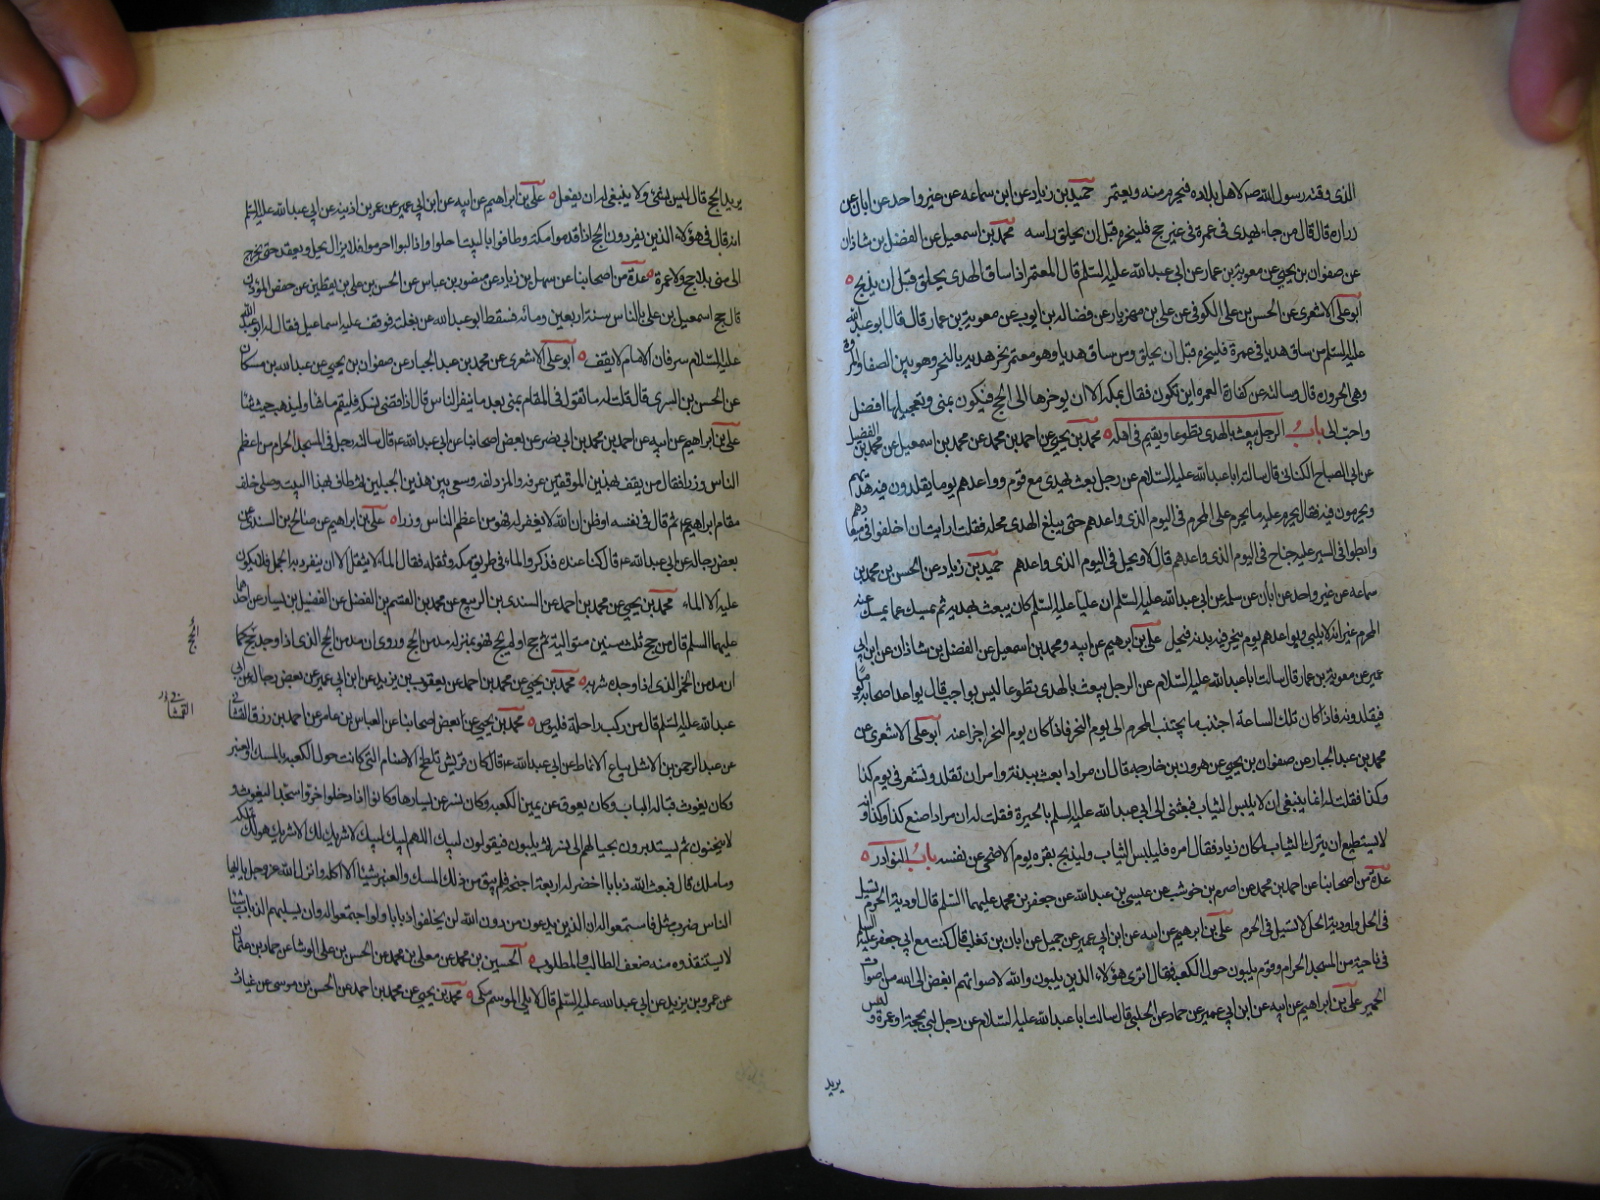 الذى وقته رسول الله صر لاهل بلاده فيحرم منه ويعتمر حميد بن زياد عن ابن سماعه عن غير واحد عن ابان عن
زراره قال قال من جاء بهدى فى عمرة فى غير حج فلينحره قبل ان يحلق راسه محمد بن اسمعيل عن الفضل بن شاذان
عن صفوان بن يحيى عن معوية بن عمار عن ابى عبدالله عليه السلام قال المعتمر اذا ساق الهدى يحلق قبل ان يذبح
ابو على الاشعرى عن الحسن بن على الكوفى عن على بن مهزيار عن فضاله بن ايوب عن معوية بن عمار قال قال ابو عبدالله
عليه السلام من ساق هديا فى عمرة فلينحره قبل ان يحلق ومن ساق هديا وهو معتمر نحر هديه بالمنحر وهو بين الصفا والمروة
وهى الحزوره قال وسالته عن كفارة العمره اين تكون فقال بمكه الا ان يوخرها الى الحج فتكون بمنى وتعجيلها افضل
واحب الى باب الرجل يبعث بالهدى تطوعا ويقيم فى اهله محمد بن يحيى عن احمد بن محمد عن محمد بن اسمعيل عن محمد بن الفضيل
عن ابى الصباح الكنانى قال سالت ابا عبدالله عليه السلام عن رجل بعث بهدى مع قوم وواعدهم يوما يقلدون فيه هديهم
ويحرمون فيه فقال يحرم عليه ما يحرم على المحرم فى اليوم الذى واعدهم حتى يبلغ الهدى محله فقلت ارايت ان اخلفوا فى ميعادهم
وابطوا فى السير عليه جناح فى اليوم الذى واعدهم قال لا ويحل فى اليوم الذى واعدهم حميد بن زياد عن الحسن بن محمد بن
سماعه عن غير واحد عن أبان عن سلمه عن ابى عبدالله عليه السلم ان عليا عليه السلم كان يبعث بهديه ثم يمسك عما يمسك عنه
المحرم غير انه لا يلبى ويواعدهم يوم ينحر فيه بدنه فيحل على بن ابرهيم عن ابيه ومحمد بن اسمعيل عن الفضل بن شاذان عن ابن ابى
عمير عن معوية بن عمار قال سالت ابا عبدالله عليه السلام عن الرجل يبعث بالهدى تطوعا ليس بواجب قال يواعد اصحابه يوما
فيقلدونه فاذا كان تلك الساعة اجتنب ما يجتنب المحرم الى يوم النحر فاذا كان يوم النحر اجزا عنه ابو على الاشعرى عن
محمد بن عبد الجبار عن صفوان بن يحيى عن هرون بن خارجه قال ان مرادا بعث ببدنة وامر ان تقلد وتشعر فى يوم كذا
وكذا فقلت له انما ينبغى ان لا يلبس الثياب فبعثنى الى ابى عبد الله عليه السلم بالحيرة فقلت له ان مرادا صنع كذا وكذا وانه
لا يستطيع ان يترك الثياب لمكان زياد فقال امره فليلبس الثياب وليذبح بقره يوم الاضحى عن نفسه باب النوادر
عدة من اصحابنا عن احمد بن محمد عن اصرم بن خوشب عن عيسى بن عبدالله عن جعفر بن محمد عليهما السلم قال اودية الحرم تسيل
فى الحل واودية الحل لا تسيل فى الحرم على بن ابرهيم عن ابيه عن ابن ابى عمير عن جميل عن ابان بن تغلب قال كنت مع ابى جعفر عليه السلم
فى ناحية من المسجد الحرام وقوم يلبون حول الكعبه فقال اترى هؤلاء الذين يلبون والله لاصواتهم ابغض الى الله من اصوات
الحمير على بن ابراهيم عن ابيه عن ابن ابى عمير عن حماد عن الحلبى قال سالت ابا عبدالله عليه السلام عن رجل لبى بحجة او عمرة وليس
يريد
يريد الحج قال ليس بشئ ولا ينبغى له ان يفعل على بن ابراهيم عن ابيه عن ابن ابى عمير عن عمر بن اذينه عن ابى عبدالله عليه السلم
انه قال فى هؤلاء الذين يفردون الحج اذا قدموا مكة وطافوا بالبيت احلوا واذا لبوا احرموا فلا يزال يحل ويعقد حتى يخرج
الى منى بلا حج ولا عمرة عدة من اصحابنا عن سهل بن زياد عن منصور بن عباس عن الحسن بن على بن يقطين عن حفص المؤذن
قال حج اسمعيل بن على بالناس سنة اربعين ومائه فسقط ابو عبدالله عن بغلته فوقف عليه اسماعيل فقال له ابو عبدالله
عليه السلام سر فان الامام لا يقف ابو على الاشعرى عن محمد بن عبد الجبار عن صفوان بن يحيى عن عبدالله بن مسكان
عن الحسن بن السرى قال قلت له ما تقول فى المقام بمنى بعد ما ينفر الناس قال اذا قضى نسكه فليقم ما شا وليذهب حيث شا
على بن ابراهيم عن ابيه عن احمد بن محمد بن ابى نصر عن بعض اصحابنا عن ابى عبدالله ع قال ساله رجل فى المسجد الحرام من اعظم
الناس وزرا فقال من يقف بهذين الموقفين عرفه والمزدلفه وسعى بين هذين الجبلين ثم طاف بهذا البيت وصلى خلف
مقام ابراهيم ع ثم قال فى نفسه او ظن ان الله لا يغفر له فهو من اعظم الناس وزرا على بن ابراهيم عن صالح بن السندى عن
بعض رجاله عن ابى عبدالله ع قال كنا عنده فذكروا الماء فى طريق مكه وثقله فقال الماء لا يثقل الا ان ينفرد به الجمل فلا يكون
عليه الا الماء محمد بن يحيى عن محمد بن احمد عن السندى بن الربيع عن محمد بن القسم بن الفضل عن الفضيل بن يسار عن احدهما
عليهما السلم قال من حج ثلث سنين متواليه ثم حج او لم يحج فهو بمنزله مدمن الحج وروى ان مدمن الحج الذى اذا وجد الحج حج كما
الحج
ان مدمن الخمر الذى اذا وجده شربه محمد بن يحيى عن محمد بن احمد عن يعقوب بن يزيد عن ابن ابى عمير عن بعض رجاله عن ابى
عبدالله عليه السلم قال من ركب راحلة فليوص محمد بن يحيى عن بعض اصحابنا عن العباس بن عامر عن احمد بن رزق الغشانى
عن عبد الرحمن بن الاشل بياع الانماط عن ابى عبدالله ع قال كان قريش تلطخ الاصنام التى كانت حول الكعبه بالمسك والعنبر
وكان يغوث قباله الباب وكان يعوق عن يمين الكعبه وكان نسر عن يسارها وكانوا اذا دخلوا خروا سجدا ليغوث و
لا ينحنون ثم يستديرون بحيالهم الى نسر ثم يلبون فيقولون لبيك اللهم لبيك لبيك لا شريك لك الا شريك هو لك تملكه
وما ملك قال فبعث الله ذبابا اخضر له اربعة اجنحه فلم يبق من ذلك المسك والعنبر شيئا الا اكله وانزل الله عز وجل يا ايها
الناس ضرب مثل فاستمعوا له ان الذين يدعون من دون الله لن يخلقوا ذبابا ولو اجتمعوا له وان يسلبهم الذباب شيئا
لا يستنقذوه منه ضعف الطالب والمطلوب الحسين بن محمد عن معلى بن محمد عن الحسن بن على الوشا عن حماد بن عثمان
عن عمرو بن يزيد عن ابى عبدالله عليه السلم قال لا يلى الموسم مكى محمد بن يحيى عن محمد بن احمد عن الحسن بن موسى عن غياث